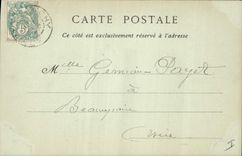 CARTE POSTALE
Ce côté est exclusivement réservé à l'adresse
Melle Germaine Payet
à
Beaurepaire
Isère
5